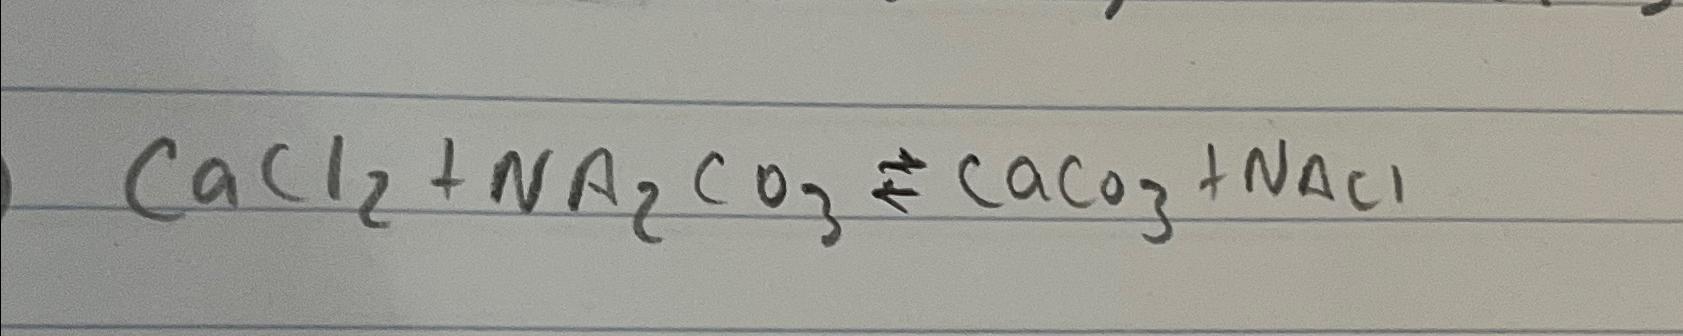 CaCl₂ + NA₂CO₃ ⇄ CaCO₃ + NACl